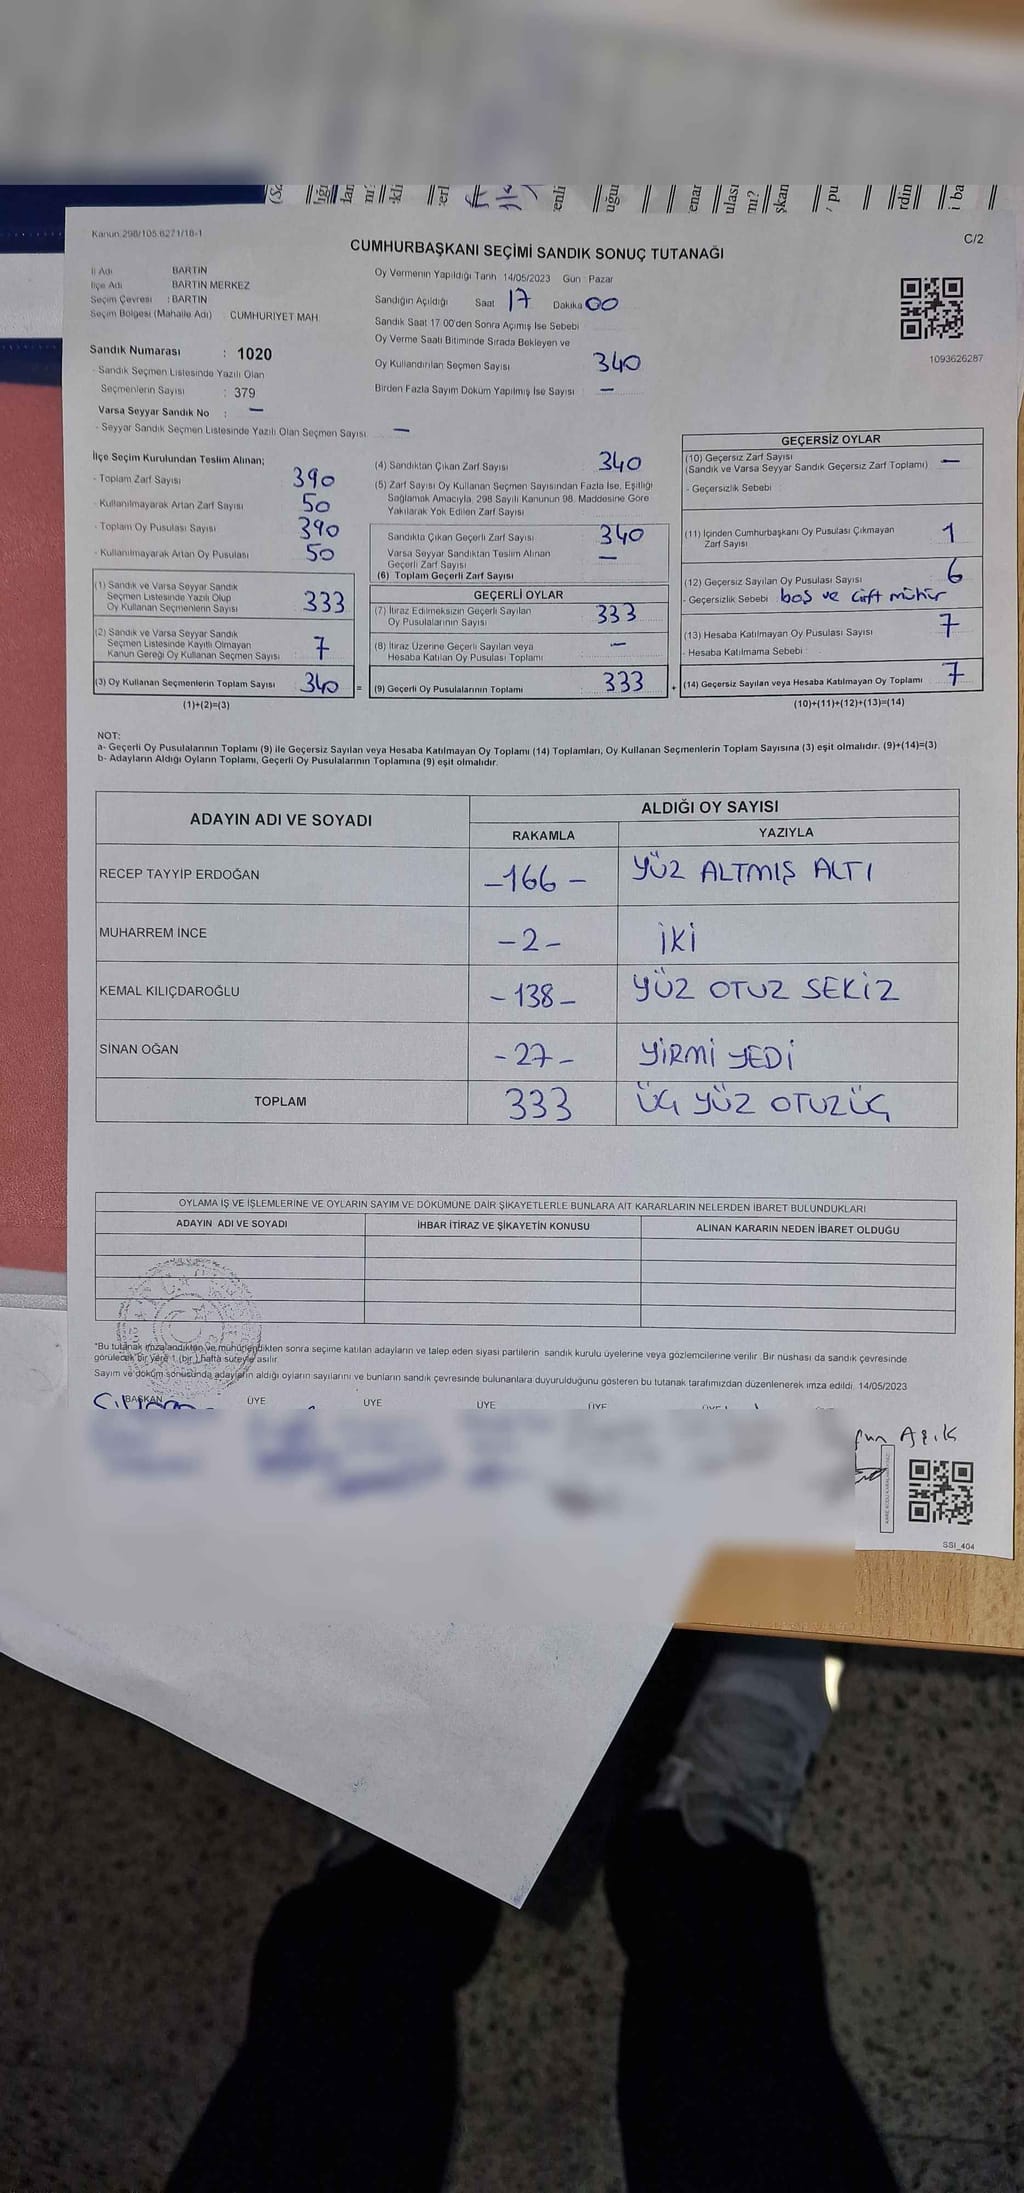 Kanun 298/105.6271/18-1
C/2
CUMHURBAŞKANI SEÇİMİ SANDIK SONUÇ TUTANAĞI
İl Adı BARTIN
İlçe Adı BARTIN MERKEZ
Seçim Çevresi : BARTIN
Seçim Bölgesi (Mahalle Adı) CUMHURİYET MAH.
Sandık Numarası : 1020
- Sandık Seçmen Listesinde Yazılı Olan
Seçmenlerin Sayısı : 379
Varsa Seyyar Sandık No : —
- Seyyar Sandık Seçmen Listesinde Yazılı Olan Seçmen Sayısı —
Oy Vermenin Yapıldığı Tarih 14/05/2023 Gün : Pazar
Sandığın Açıldığı Saat 17 Dakika 00
Sandık Saat 17 00'den Sonra Açımış İse Sebebi
Oy Verme Saati Bitiminde Sırada Bekleyen ve
Oy Kullandırılan Seçmen Sayısı 340
Birden Fazla Sayım Döküm Yapılmış İse Sayısı —
1093626287
İlçe Seçim Kurulundan Teslim Alınan;
- Toplam Zarf Sayısı 390
- Kullanılmayarak Artan Zarf Sayısı 50
- Toplam Oy Pusulası Sayısı 390
- Kullanılmayarak Artan Oy Pusulası 50
(1) Sandık ve Varsa Seyyar Sandık
Seçmen Listesinde Yazılı Olup
Oy Kullanan Seçmenlerin Sayısı 333
(2) Sandık ve Varsa Seyyar Sandık
Seçmen Listesinde Kayıtlı Olmayan
Kanun Gereği Oy Kullanan Seçmen Sayısı 7
(3) Oy Kullanan Seçmenlerin Toplam Sayısı 340 =
(1)+(2)=(3)
(4) Sandıktan Çıkan Zarf Sayısı 340
(5) Zarf Sayısı Oy Kullanan Seçmen Sayısından Fazla İse, Eşitliği
Sağlamak Amacıyla, 298 Sayılı Kanunun 98. Maddesine Göre
Yakılarak Yok Edilen Zarf Sayısı
Sandıkta Çıkan Geçerli Zarf Sayısı 340
Varsa Seyyar Sandıktan Teslim Alınan
Geçerli Zarf Sayısı —
(6) Toplam Geçerli Zarf Sayısı
GEÇERLİ OYLAR
(7) İtiraz Edilmeksizin Geçerli Sayılan
Oy Pusulalarının Sayısı 333
(8) İtiraz Üzerine Geçerli Sayılan veya
Hesaba Katılan Oy Pusulası Toplamı —
(9) Geçerli Oy Pusulalarının Toplamı 333 +
GEÇERSİZ OYLAR
(10) Geçersiz Zarf Sayısı
(Sandık ve Varsa Seyyar Sandık Geçersiz Zarf Toplamı) —
- Geçersizlik Sebebi :
(11) İçinden Cumhurbaşkanı Oy Pusulası Çıkmayan
Zarf Sayısı 1
(12) Geçersiz Sayılan Oy Pusulası Sayısı 6
- Geçersizlik Sebebi boş ve çift mühür
(13) Hesaba Katılmayan Oy Pusulası Sayısı 7
- Hesaba Katılmama Sebebi :
(14) Geçersiz Sayılan veya Hesaba Katılmayan Oy Toplamı 7
(10)+(11)+(12)+(13)=(14)
NOT:
a- Geçerli Oy Pusulalarının Toplamı (9) ile Geçersiz Sayılan veya Hesaba Katılmayan Oy Toplamı (14) Toplamları, Oy Kullanan Seçmenlerin Toplam Sayısına (3) eşit olmalıdır. (9)+(14)=(3)
b- Adayların Aldığı Oyların Toplamı, Geçerli Oy Pusulalarının Toplamına (9) eşit olmalıdır.
ADAYIN ADI VE SOYADI ALDIĞI OY SAYISI
RAKAMLA YAZIYLA
RECEP TAYYİP ERDOĞAN -166- YÜZ ALTMIŞ ALTI
MUHARREM İNCE -2- İKİ
KEMAL KILIÇDAROĞLU -138- YÜZ OTUZ SEKİZ
SİNAN OĞAN -27- YİRMİ YEDİ
TOPLAM 333 ÜÇ YÜZ OTUZÜÇ
OYLAMA İŞ VE İŞLEMLERİNE VE OYLARIN SAYIM VE DÖKÜMÜNE DAİR ŞİKAYETLERLE BUNLARA AİT KARARLARIN NELERDEN İBARET BULUNDUKLARI
ADAYIN ADI VE SOYADI İHBAR İTİRAZ VE ŞİKAYETİN KONUSU ALINAN KARARIN NEDEN İBARET OLDUĞU
*Bu tutanak imzalandıktan ve mühürlendikten sonra seçime katılan adayların ve talep eden siyasi partilerin sandık kurulu üyelerine veya gözlemcilerine verilir. Bir nüshası da sandık çevresinde
görülecek bir yere 1 (bir) hafta süreyle asılır.
Sayım ve döküm sonucunda adayların aldığı oyların sayılarını ve bunların sandık çevresinde bulunanlara duyurulduğunu gösteren bu tutanak tarafımızdan düzenlenerek imza edildi. 14/05/2023
BAŞKAN ÜYE ÜYE ÜYE ÜYE
Açık
SSI_404